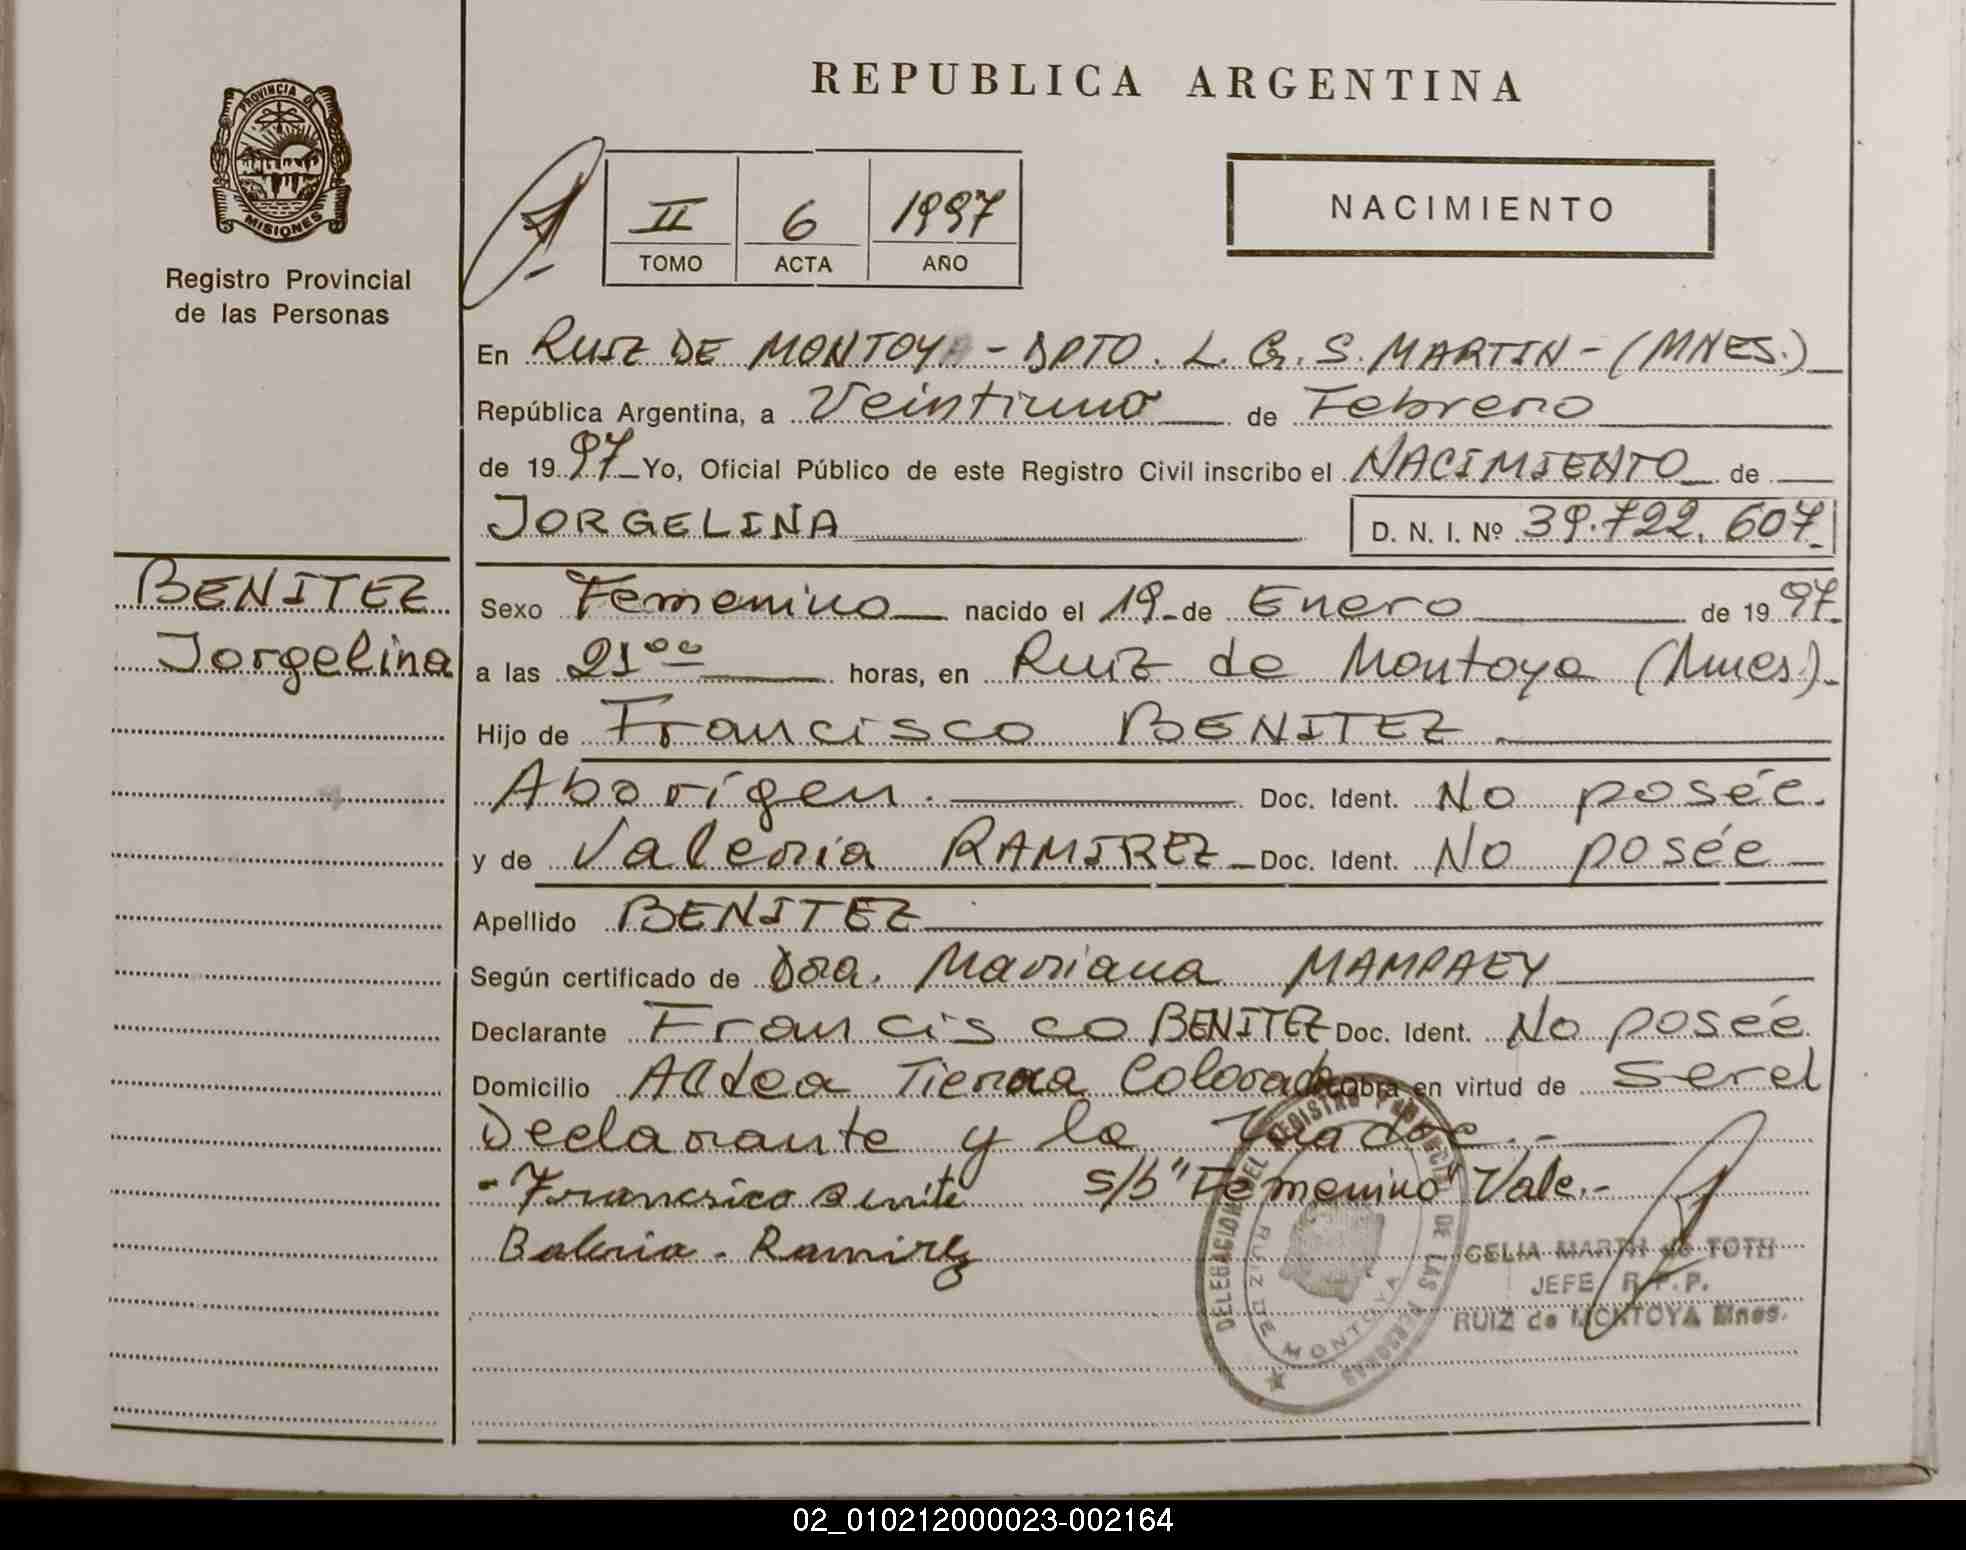 REPUBLICA ARGENTINA
PROVINCIA DE
MISIONES
Registro Provincial
de las Personas
II 6 1997
TOMO ACTA AÑO
NACIMIENTO
En RUIZ DE MONTOYA - DPTO. L. G. S. MARTIN - (MNES.)
República Argentina, a Veintiuno de Febrero
de 1997 Yo, Oficial Público de este Registro Civil inscribo el NACIMIENTO de
JORGELINA D. N. I. Nº 39.722.607
BENITEZ
Jorgelina
Sexo Femenino nacido el 19 de Enero de 1997
a las 21⁰⁰ horas, en Ruiz de Montoya (Mnes).
Hijo de Francisco BENITEZ
Aborígen. Doc. Ident. No posée.
y de Valeria RAMIREZ Doc. Ident. No posée
Apellido BENITEZ
Según certificado de Dra. Mariana MAMPAEY
Declarante Francisco BENITEZ Doc. Ident. No posée
Domicilio Aldea Tierra Colorada Obra en virtud de ser el
Declarante y la Madre.-
- Francsico Benite s/b "Femenino" Vale.-
Baleria. Ramirez
DELEGACION DEL REGISTRO PROVINCIAL DE LAS PERSONAS
RUIZ DE MONTOYA
CELIA MARTA de TOTH
JEFE R.P.P.
RUIZ de MONTOYA Mnes.
02_010212000023-002164